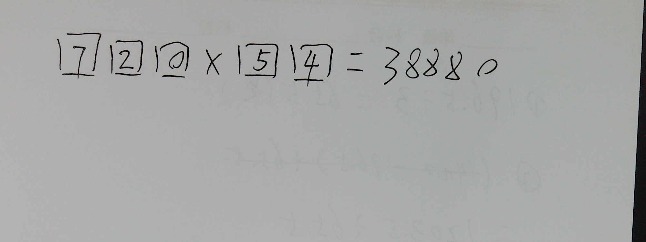 720×54=38880